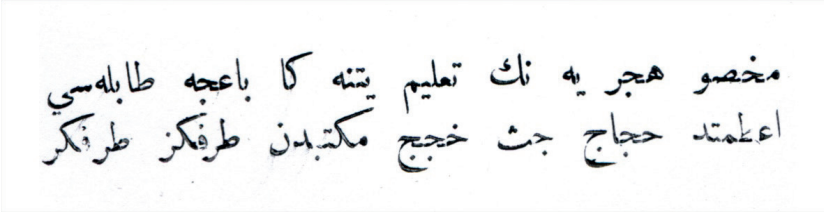 مخصو هجر يه نك تعليم يتنه كا باعجه طابله‌سي
اعظمتد حجاج جث خججج مكتبدن طرفكز طرفكر